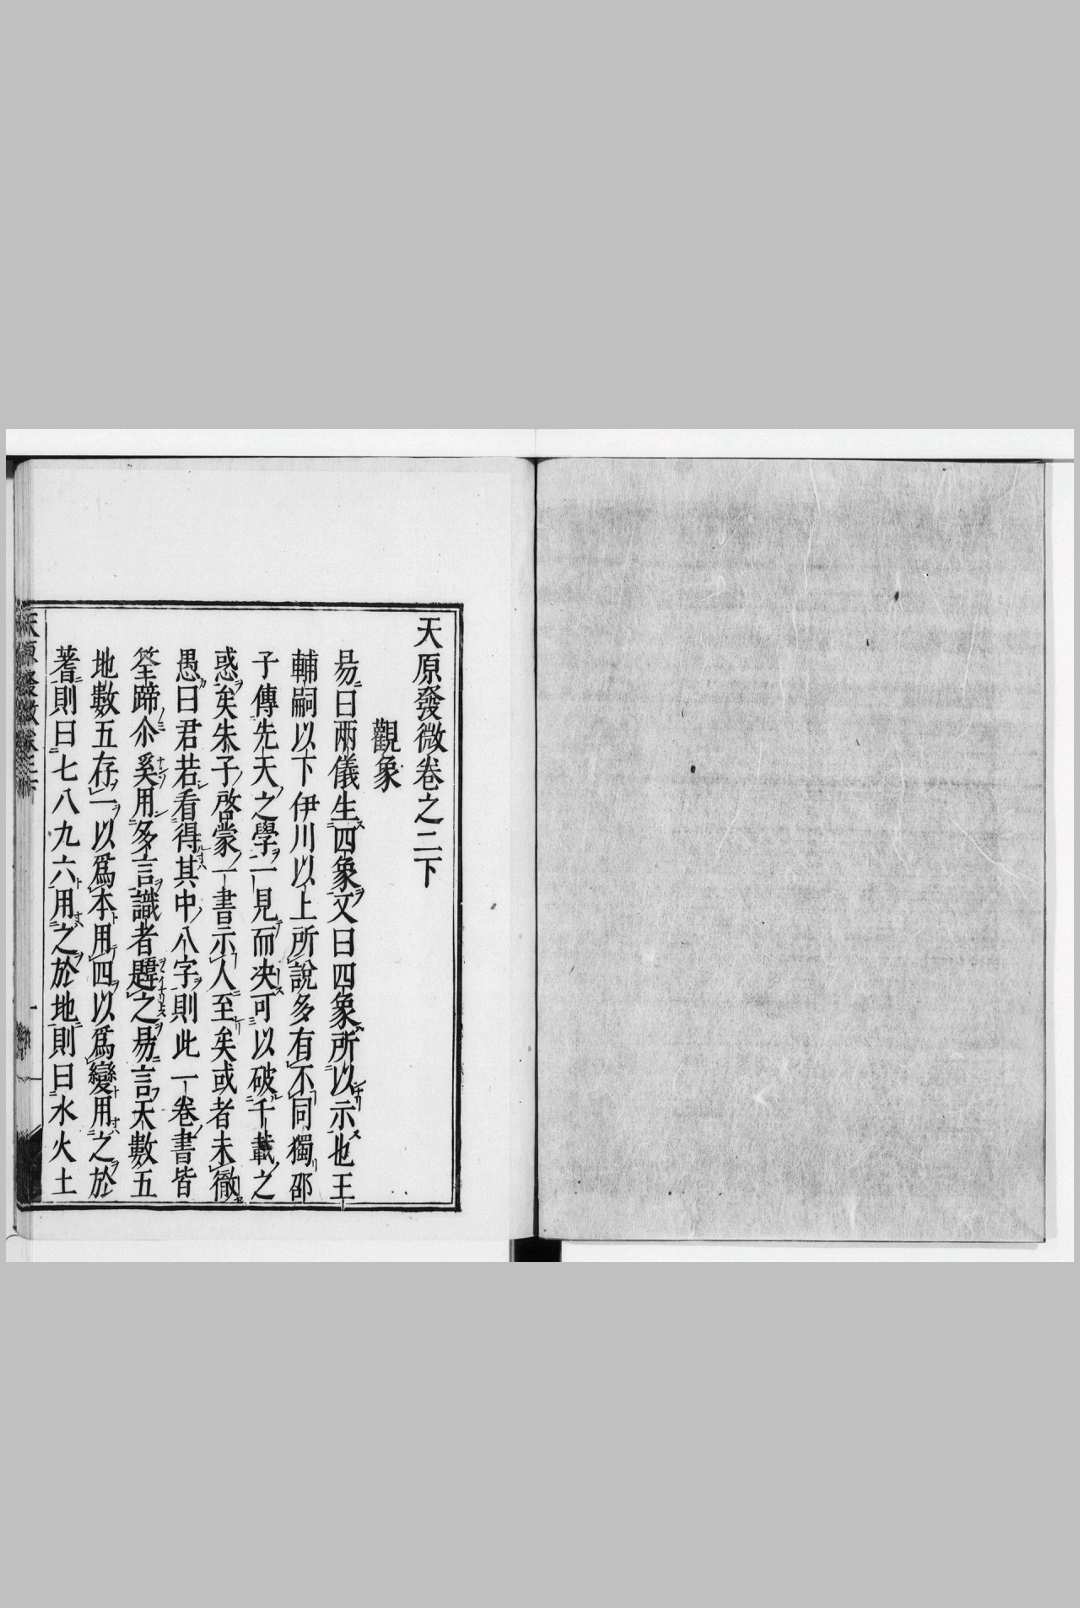 天原發微卷之二下
觀象
易曰兩儀生四象又曰四象所以示也王
輔嗣以下伊川以上所說多有不同獨邵
子傳先天之學一見而決可以破千載之
惑矣朱子啓蒙一書示人至矣或者未徹
愚曰君若看得其中八字則此一卷書皆
筌蹄尒奚用多言識者韙之易言天數五
地數五存一以爲本用四以爲變用之於
蓍則曰七八九六用之於地則曰水火土